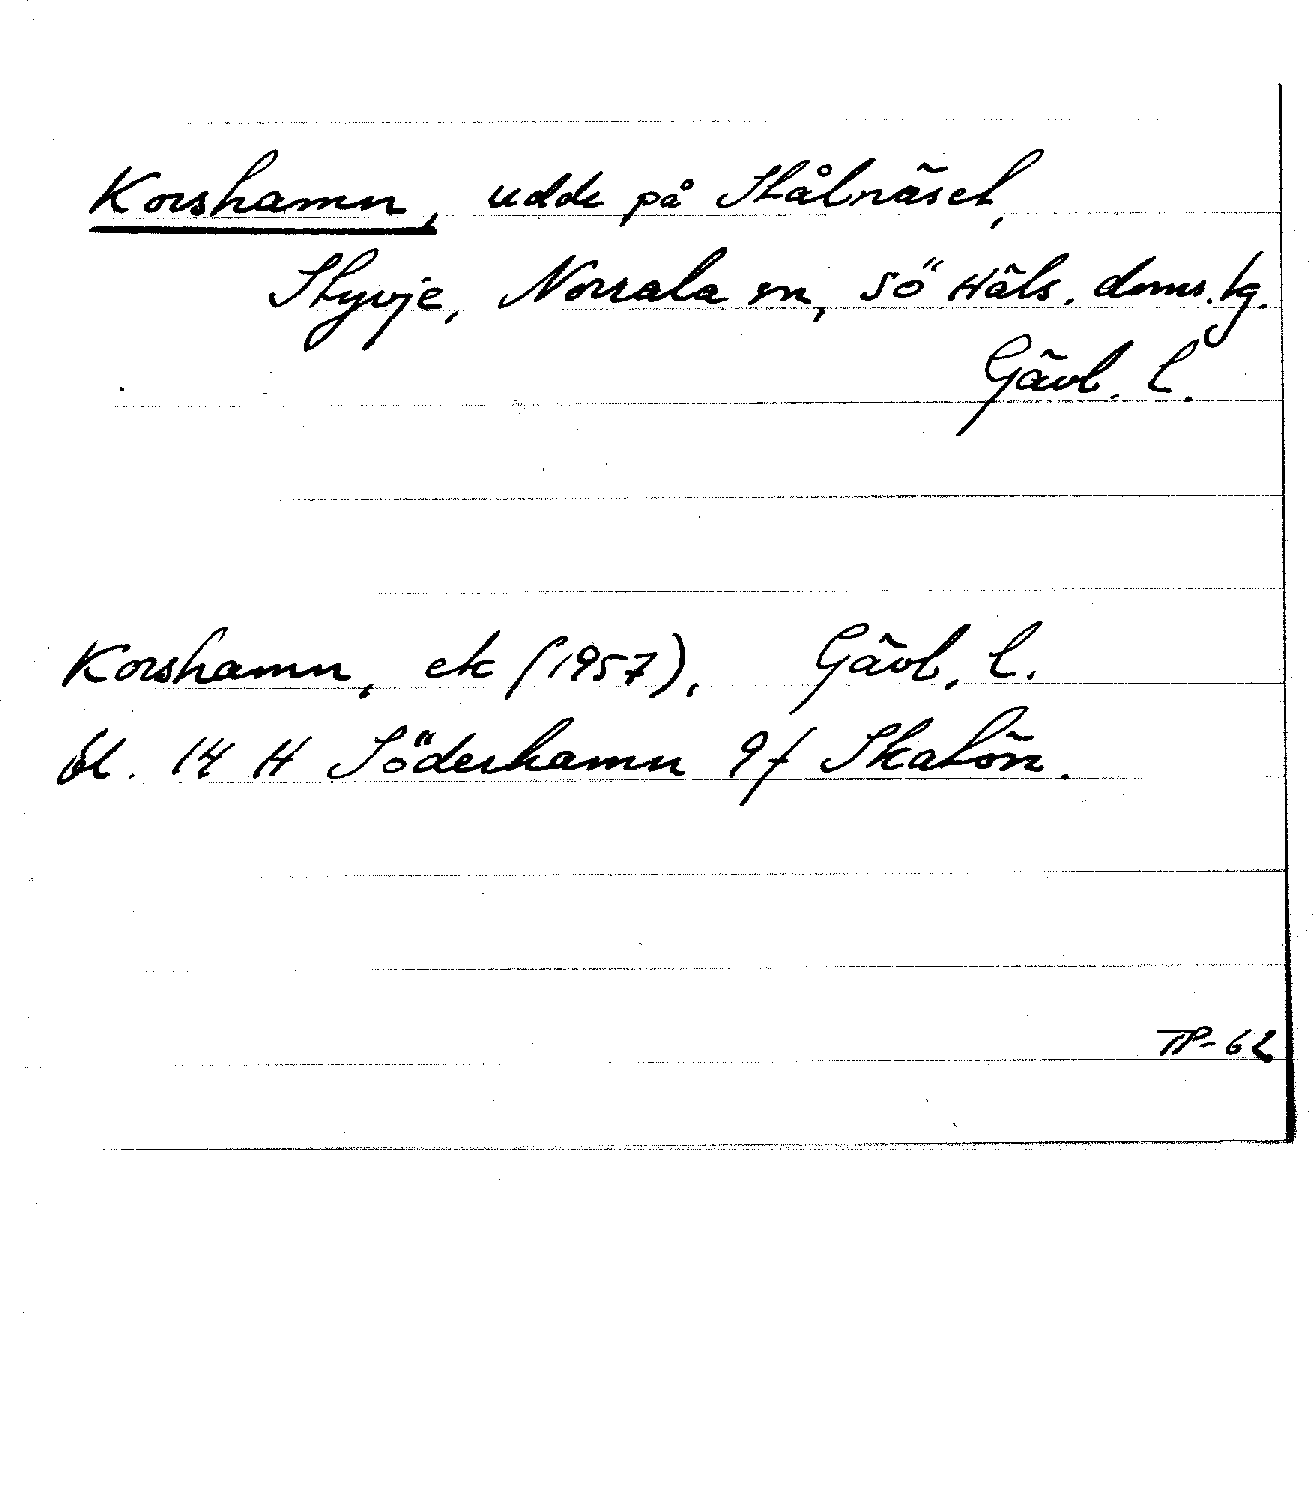 Korshamn, udde på Stålnäset,
Styvje, Norrala sn, Sö Häls. doms. tg.
Gävl. l.
Korshamn, ek (1957), Gävl. l.
bl. 14 H Söderhamn 9f Skatön.
TP-62